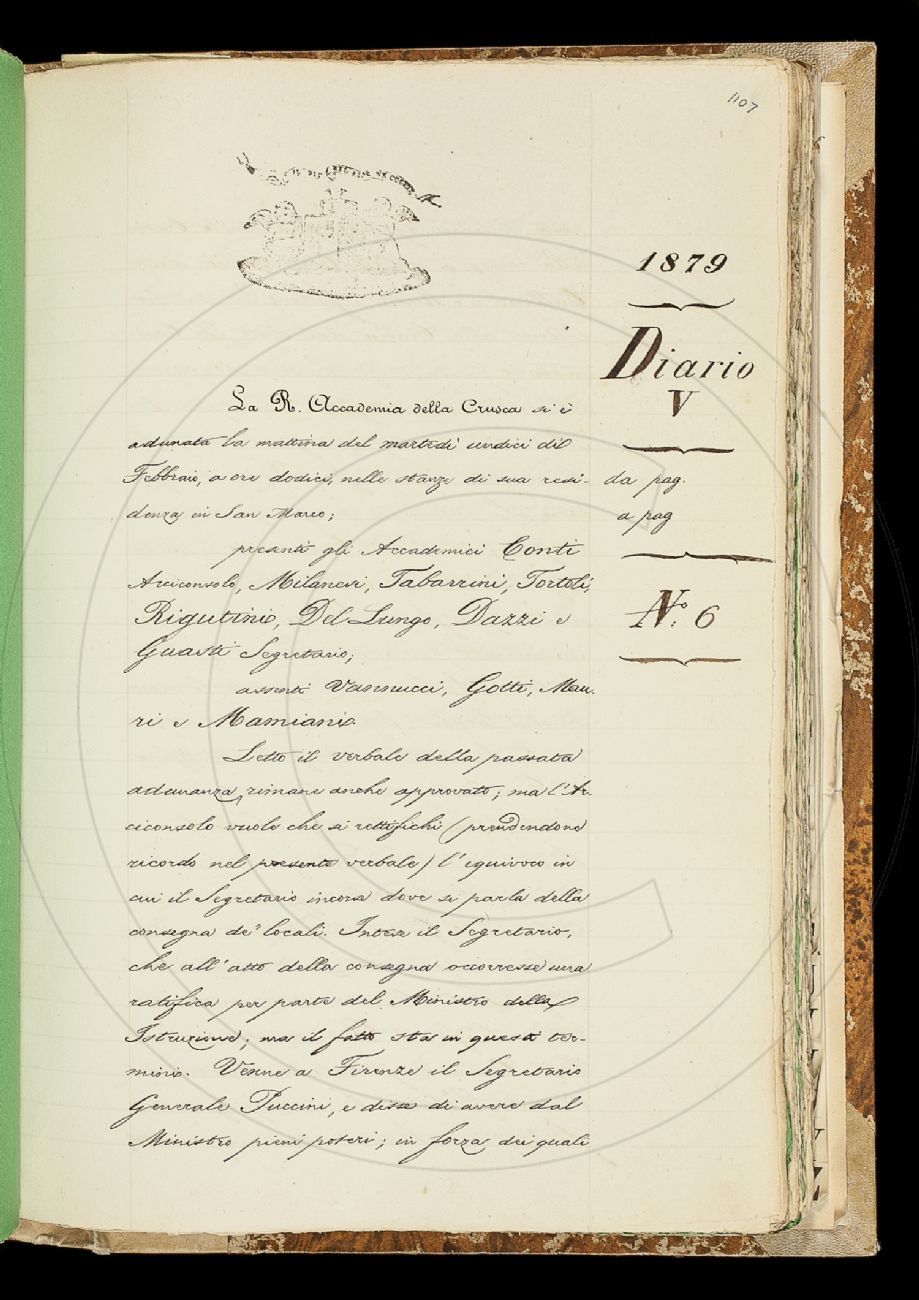 1107
1879
Diario
V
da pag.
a pag
N.° 6
La R. Accademia della Crusca si è
adunata la mattina del martedì undici di
Febbraio, a ore dodici, nelle stanze di sua resi-
denza in San Marco;
presenti gli Accademici Conti
Arciconsolo, Milanesi, Tabarrini, Tortoli,
Rigutini, Del Lungo, Dazzi e
Guasti Segretario;
assenti Vannucci, Gotti, Mau-
ri e Mamiani.
Letto il verbale della passata
adunanza, rimane anche approvato; ma l'Ar-
ciconsolo vuole che si rettifichi (prendendone
ricordo nel presente verbale) l'equivoco in
cui il Segretario incorse dove si parla della
consegna de' locali. Intese il Segretario,
che all'atto della consegna occorresse una
ratifica per parte del Ministro della
Istruzione; ma il fatto sta in questi ter-
mini. Venne a Firenze il Segretario
Generale Puccini, e disse di avere dal
Ministro pieni poteri; in forza dei quali